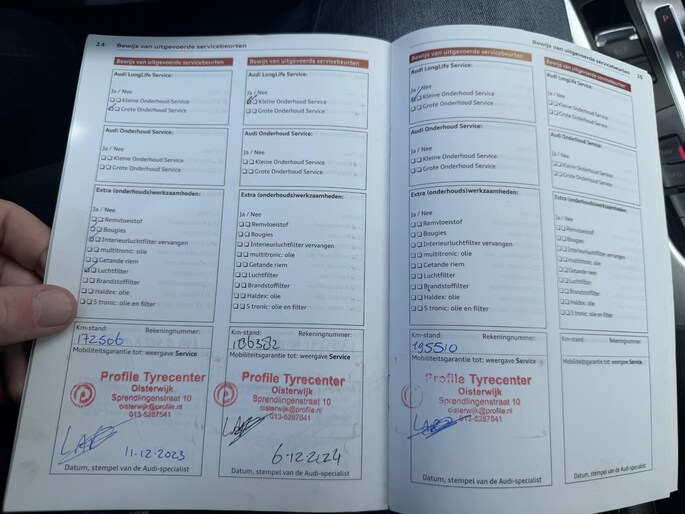 24 Bewijs van uitgevoerde servicebeurten
Bewijs van uitgevoerde servicebeurten
Audi LongLife Service:
Ja / Nee
Kleine Onderhoud Service
Grote Onderhoud Service
Audi Onderhoud Service:
Ja / Nee
Kleine Onderhoud Service
Grote Onderhoud Service
Extra (onderhouds)werkzaamheden:
Ja / Nee
Remvloeistof
Bougies
Interieurluchtfilter vervangen
multitronic: olie
Getande riem
Luchtfilter
Brandstoffilter
Haldex: olie
S tronic: olie en filter
Km-stand: Rekeningnummer:
172506
Mobiliteitsgarantie tot: weergave Service
Profile Tyrecenter
Oisterwijk
Sprendlingenstraat 10
oisterwijk@profile.nl
013-5287541
11-12-2023
Datum, stempel van de Audi-specialist
Bewijs van uitgevoerde servicebeurten
Audi LongLife Service:
Ja / Nee
Kleine Onderhoud Service
Grote Onderhoud Service
Audi Onderhoud Service:
Ja / Nee
Kleine Onderhoud Service
Grote Onderhoud Service
Extra (onderhouds)werkzaamheden:
Ja / Nee
Remvloeistof
Bougies
Interieurluchtfilter vervangen
multitronic: olie
Getande riem
Luchtfilter
Brandstoffilter
Haldex: olie
S tronic: olie en filter
Km-stand: Rekeningnummer:
Mobiliteitsgarantie tot: weergave Service
Profile Tyrecenter
Oisterwijk
Sprendlingenstraat 10
oisterwijk@profile.nl
013-5287541
6-12-2024
Datum, stempel van de Audi-specialist
Bewijs van uitgevoerde servicebeurten 25
Bewijs van uitgevoerde servicebeurten
Audi LongLife Service:
Ja / Nee
Kleine Onderhoud Service
Grote Onderhoud Service
Audi Onderhoud Service:
Ja / Nee
Kleine Onderhoud Service
Grote Onderhoud Service
Extra (onderhouds)werkzaamheden:
Ja / Nee
Remvloeistof
Bougies
Interieurluchtfilter vervangen
multitronic: olie
Getande riem
Luchtfilter
Brandstoffilter
Haldex: olie
S tronic: olie en filter
Km-stand: Rekeningnummer:
195510
Mobiliteitsgarantie tot: weergave Service
Profile Tyrecenter
Oisterwijk
Sprendlingenstraat 10
oisterwijk@profile.nl
013-5287541
Datum, stempel van de Audi-specialist
Bewijs van uitgevoerde servicebeurten
Audi LongLife Service:
Ja / Nee
Kleine Onderhoud Service
Grote Onderhoud Service
Audi Onderhoud Service:
Ja / Nee
Kleine Onderhoud Service
Grote Onderhoud Service
Extra (onderhouds)werkzaamheden:
Ja / Nee
Remvloeistof
Bougies
Interieurluchtfilter vervangen
multitronic: olie
Getande riem
Luchtfilter
Brandstoffilter
Haldex: olie
S tronic: olie en filter
Km-stand: Rekeningnummer:
Mobiliteitsgarantie tot: weergave Service
Datum, stempel van de Audi-specialist